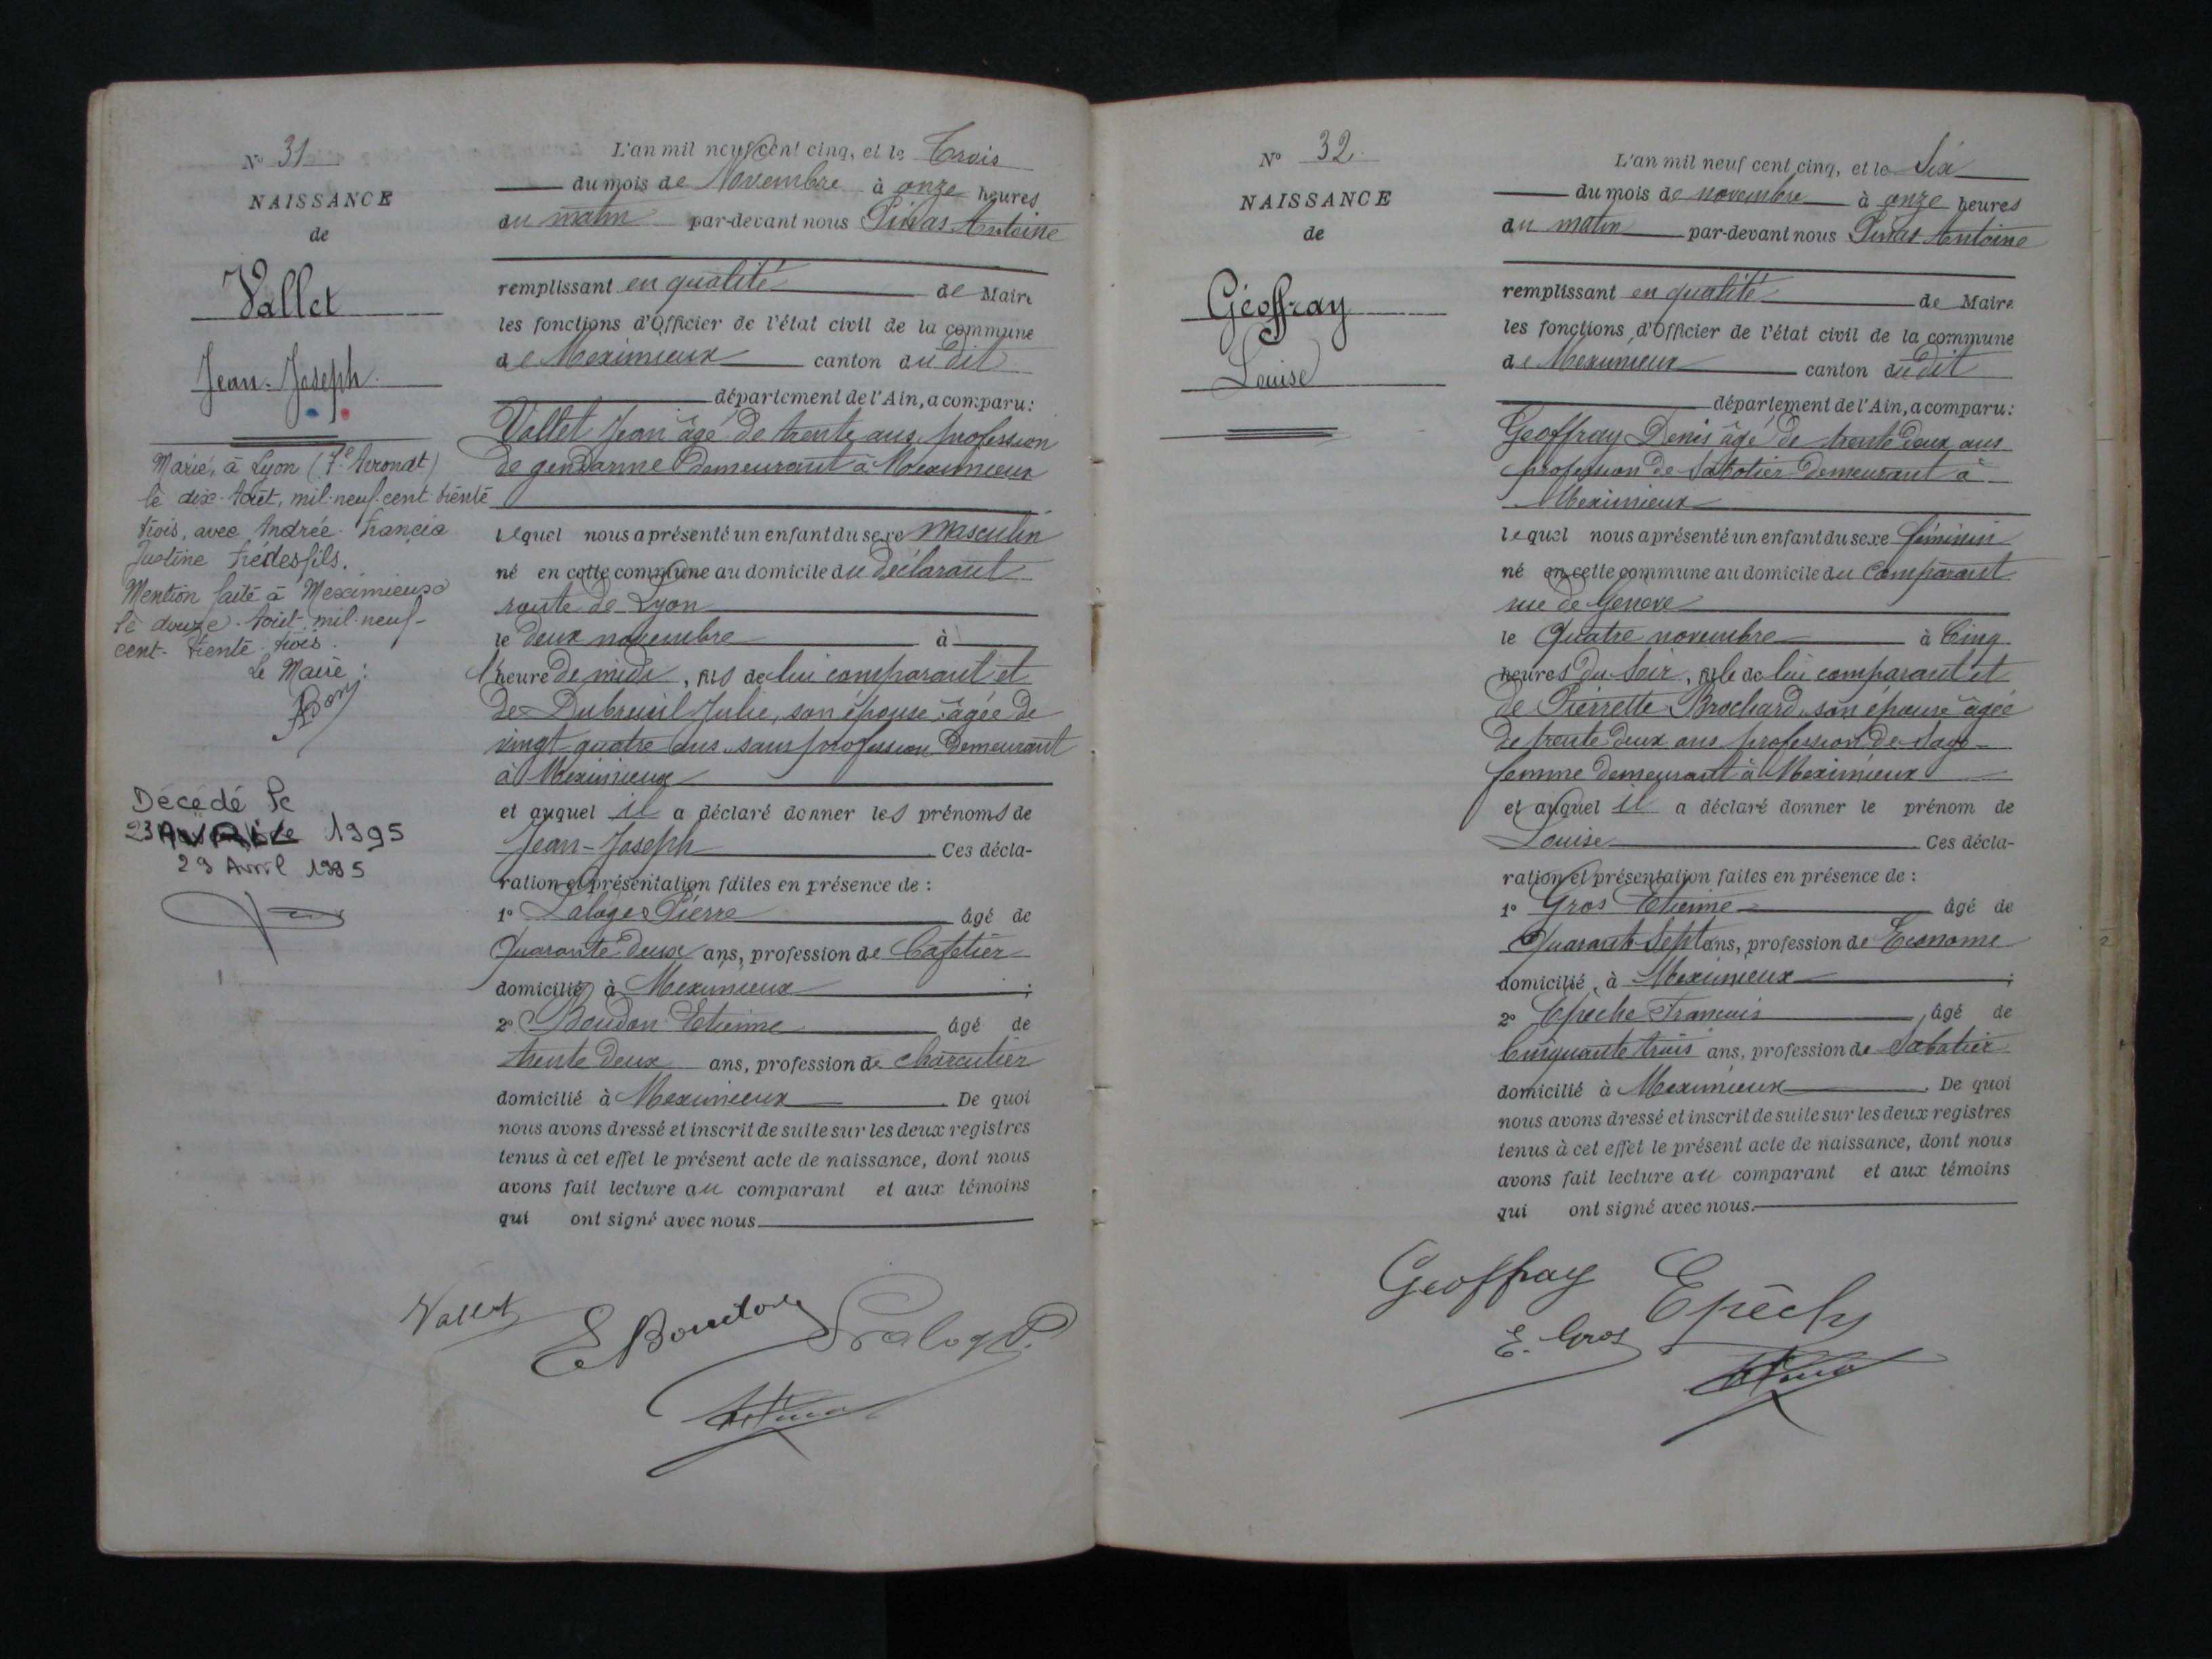 N° 31
NAISSANCE
de
Vallet
Jean-Joseph
Marié, à Lyon (7e Arrondt)
le dix-Août, mil-neuf-cent-trente
trois, avec Andrée-Francia
Justine Frédesfils.
Mention faite à Meximieux
le douze-Août-mil-neuf-
cent-trente-trois.
Le Maire :
Décédé le
23 1995
29 Avril 1995
L'an mil neuf cent cinq, et le Trois
du mois de Novembre à onze heures
du matin par-devant nous Pinas Antoine
remplissant en qualité de Maire
les fonctions d'Officier de l'état civil de la commune
de Meximieux canton du dit
département de l'Ain, a comparu :
Vallet Jean âgé de trente ans, profession
de gendarme demeurant à Meximieux
lequel nous a présenté un enfant du sexe masculin
né en cette commune au domicile du déclarant
route de Lyon
le deux novembre à
l'heure de midi, fils de lui comparant et
de Dubreuil Julie, son épouse âgée de
vingt quatre ans, sans profession demeurant
à Meximieux
et auquel il a déclaré donner les prénoms de
Jean-Joseph Ces décla-
ration et présentation faites en présence de :
1° Laloge Pierre âgé de
Quarante deux ans, profession de Cafetier
domicilié à Meximieux ;
2° Boudon Etienne âgé de
trente deux ans, profession de charcutier
domicilié à Meximieux. De quoi
nous avons dressé et inscrit de suite sur les deux registres
tenus à cet effet le présent acte de naissance, dont nous
avons fait lecture au comparant et aux témoins
qui ont signé avec nous.
Vallet EBoudon
N° 32.
NAISSANCE
de
Géoffray
Louise
L'an mil neuf cent cinq, et le Six
du mois de novembre à onze heures
du matin par-devant nous Pinas Antoine
remplissant en qualité de Maire
les fonctions d'Officier de l'état civil de la commune
de Meximieux canton du dit
département de l'Ain, a comparu :
Geoffray Denis âgé de trente deux ans
profession de Sabotier demeurant à
Meximieux
lequel nous a présenté un enfant du sexe féminin
né en cette commune au domicile du comparant
rue de Genève
le Quatre novembre à Cinq
heures du soir, fille de lui comparant et
de Pierrette Brochard, son épouse âgée
de trente deux ans profession de Sage-
femme demeurant à Meximieux
et auquel il a déclaré donner le prénom de
Louise. Ces décla-
ration et présentation faites en présence de :
1° Gros Etienne âgé de
Quarante Sept ans, profession de Econome
domicilié à Meximieux ;
2° Epêche Francois, âgé de
Cinquante trois ans, profession de Sabotier
domicilié à Meximieux. De quoi
nous avons dressé et inscrit de suite sur les deux registres
tenus à cet effet le présent acte de naissance, dont nous
avons fait lecture au comparant et aux témoins
qui ont signé avec nous.
Geoffray Epêche
E. Gros